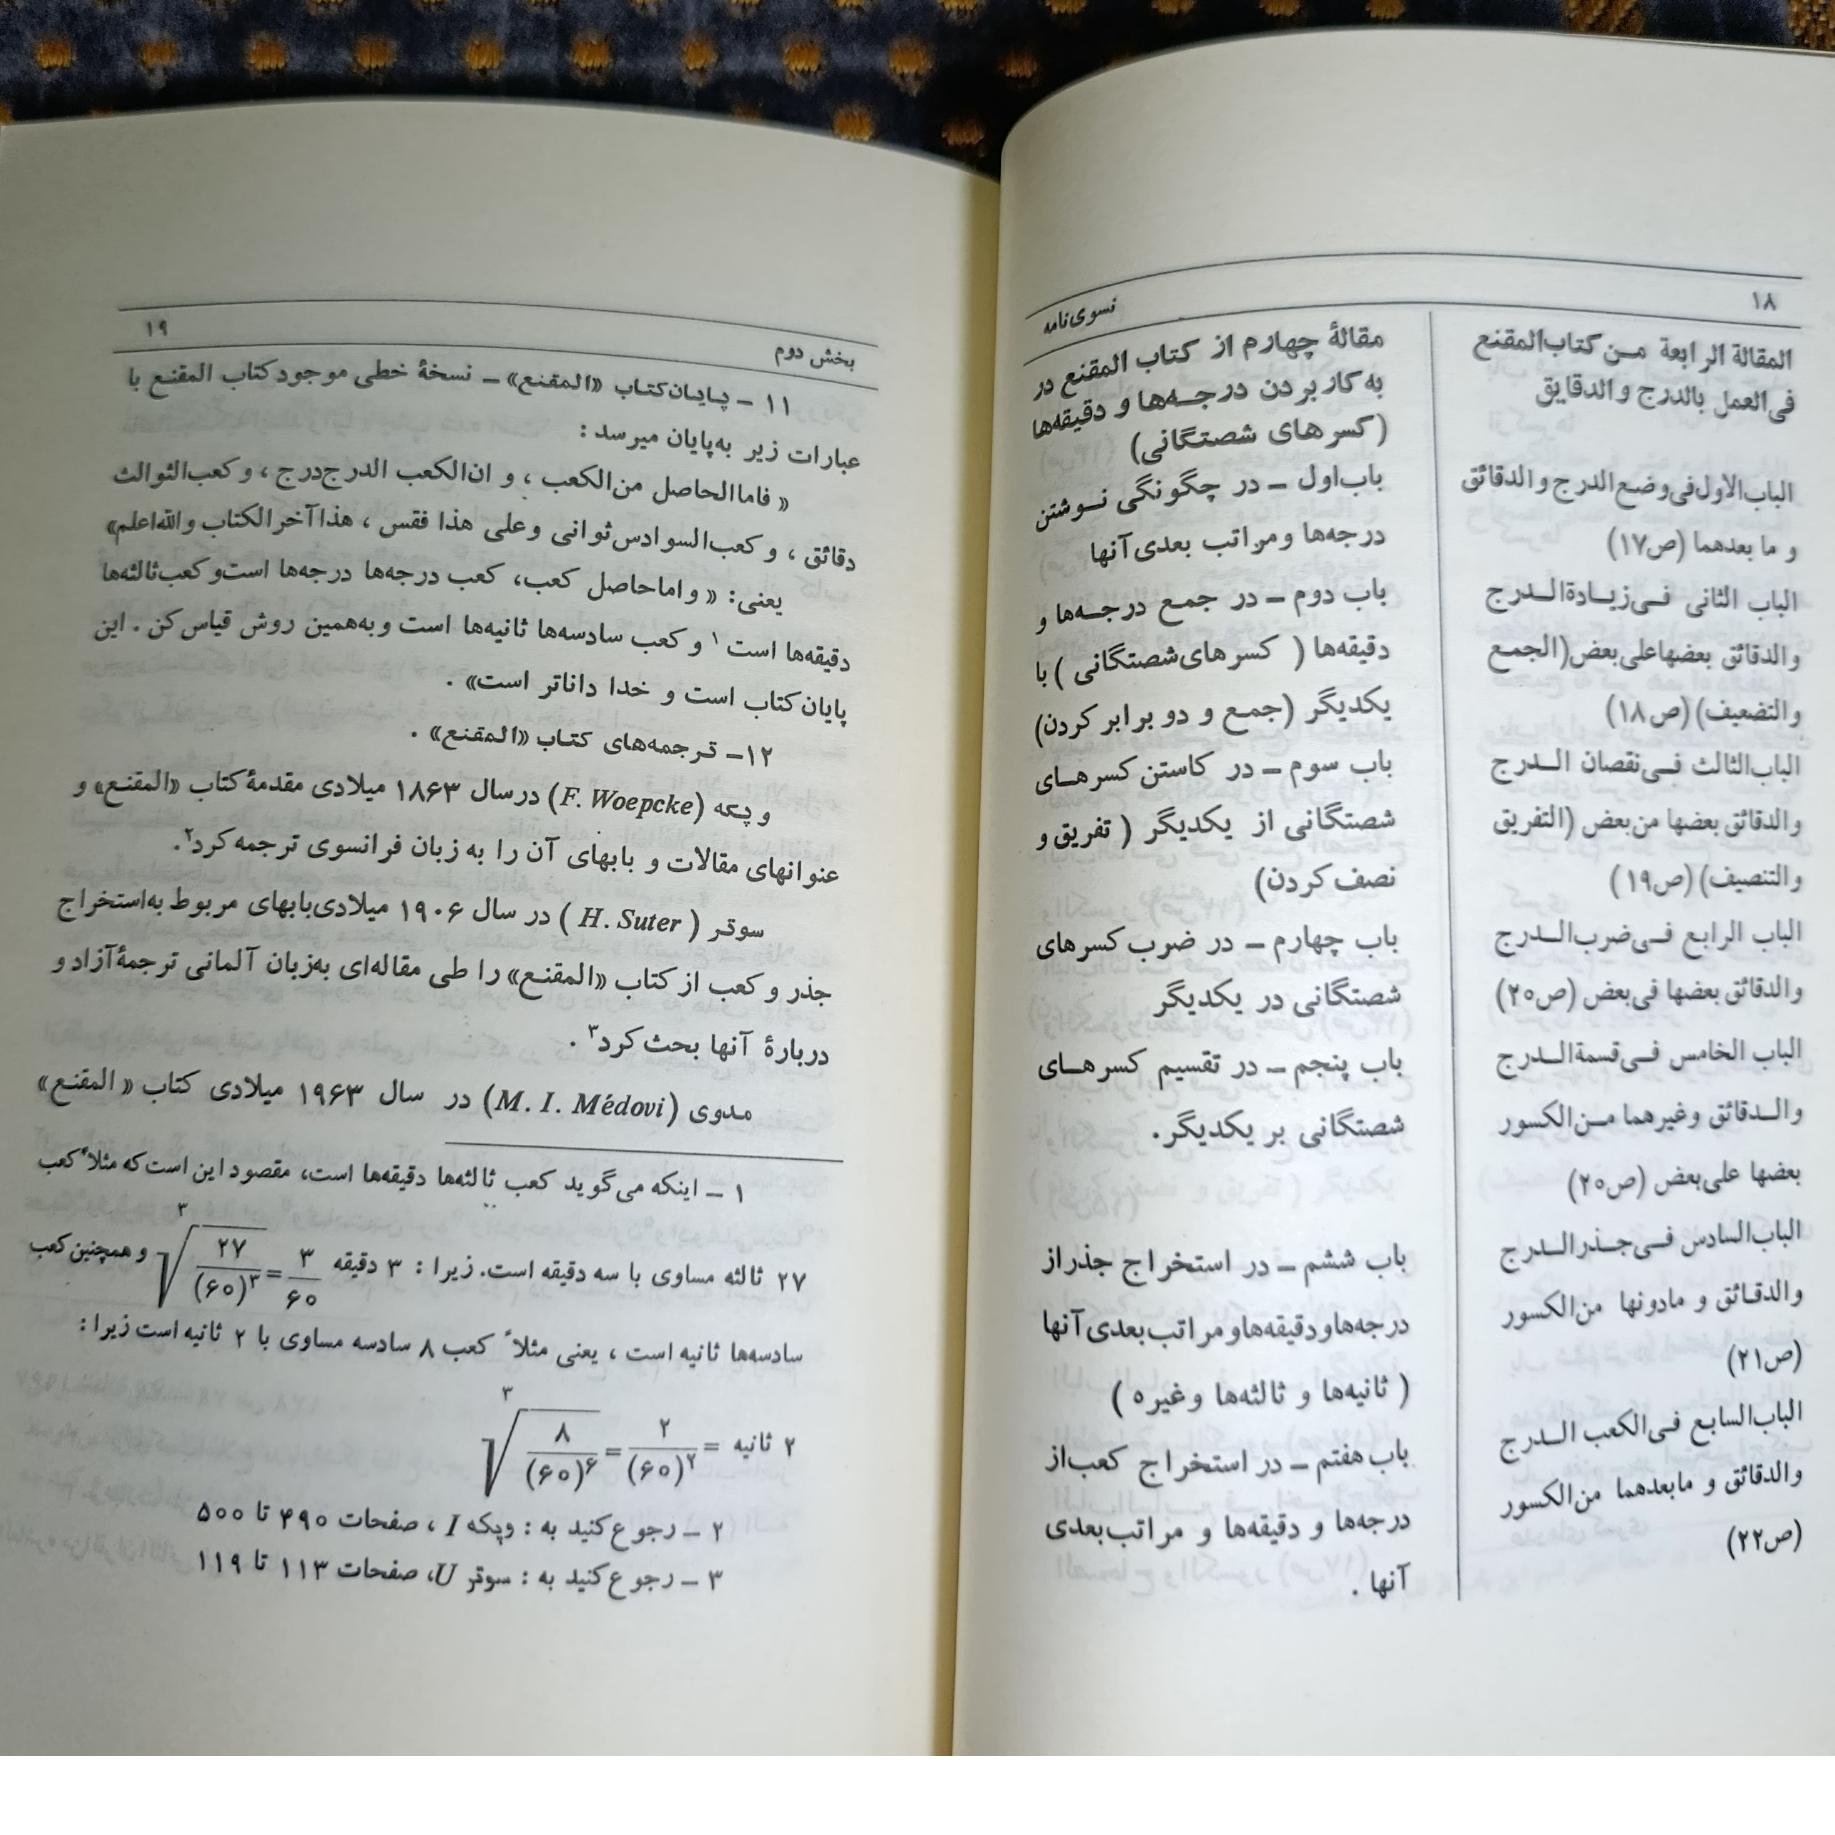 ۱۸
نسوی‌نامه
المقالة الرابعة من کتاب المقنع
فی العمل بالدرج والدقایق
الباب الاول فی وضع الدرج والدقائق
و ما بعدهما (ص۱۷)
الباب الثانی فی زیادة الدرج
والدقائق بعضها علی بعض (الجمع
والتضعیف) (ص۱۸)
الباب الثالث فی نقصان الدرج
والدقائق بعضها من بعض (التفریق
والتنصیف) (ص۱۹)
الباب الرابع فی ضرب الدرج
والدقائق بعضها فی بعض (ص۲۰)
الباب الخامس فی قسمة الدرج
والدقائق وغیرهما من الکسور
بعضها علی بعض (ص۲۰)
الباب السادس فی جذر الدرج
والدقائق و مادونها من الکسور
(ص۲۱)
الباب السابع فی الکعب الدرج
والدقائق و مابعدهما من الکسور
(ص۲۲)
مقالهٔ چهارم از کتاب المقنع در
به کار بردن درجه‌ها و دقیقه‌ها
(کسرهای شصتگانی)
باب اول – در چگونگی نوشتن
درجه‌ها ومراتب بعدی آنها
باب دوم – در جمع درجه‌ها و
دقیقه‌ها ( کسرهای شصتگانی ) با
یکدیگر (جمع و دو برابر کردن)
باب سوم – در کاستن کسرهای
شصتگانی از یکدیگر ( تفریق و
نصف کردن)
باب چهارم – در ضرب کسرهای
شصتگانی در یکدیگر
باب پنجم – در تقسیم کسرهای
شصتگانی بر یکدیگر.
باب ششم – در استخراج جذر از
درجه‌ها و دقیقه‌ها و مراتب بعدی آنها
( ثانیه‌ها و ثالثه‌ها و غیره )
باب هفتم – در استخراج کعب از
درجه‌ها و دقیقه‌ها و مراتب بعدی
آنها .
بخش دوم
۱۹
۱۱ – پایان کتاب «المقنع» – نسخهٔ خطی موجود کتاب المقنع با
عبارات زیر به‌پایان میرسد :
« فاما الحاصل من الکعب ، و ان الکعب الدرج درج ، و کعب الثوالث
دقائق ، و کعب السوادس ثوانی وعلی هذا فقس ، هذا آخر الکتاب والله اعلم»
یعنی: « و اما حاصل کعب، کعب درجه‌ها درجه‌ها است و کعب ثالثه‌ها
دقیقه‌ها است ۱ و کعب سادسه‌ها ثانیه‌ها است و به‌همین روش قیاس کن . این
پایان کتاب است و خدا داناتر است» .
۱۲– ترجمه‌های کتاب «المقنع» .
وپکه (F. Woepcke) در سال ۱۸۶۳ میلادی مقدمهٔ کتاب «المقنع» و
عنوانهای مقالات و بابهای آن را به زبان فرانسوی ترجمه کرد۲.
سوتر ( H. Suter ) در سال ۱۹۰۶ میلادی بابهای مربوط به‌استخراج
جذر و کعب از کتاب «المقنع» را طی مقاله‌ای به‌زبان آلمانی ترجمهٔ آزاد و
دربارهٔ آنها بحث کرد۳ .
مدوی (M. I. Médovi) در سال ۱۹۶۳ میلادی کتاب « المقنع»
۱ – اینکه می‌گوید کعب ثالثه‌ها دقیقه‌ها است، مقصود این است که مثلاً کعب
۲۷ ثالثه مساوی با سه دقیقه است. زیرا : ۳ دقیقه = ۳/۶۰ = ∛(۲۷/(۶۰)^۳) و همچنین کعب
سادسه‌ها ثانیه است ، یعنی مثلاً کعب ۸ سادسه مساوی با ۲ ثانیه است زیرا :
۲ ثانیه = ۲/(۶۰)^۲ = ∛(۸/(۶۰)^۶)
۲ – رجوع کنید به : وپکه I ، صفحات ۴۹۰ تا ۵۰۰
۳ – رجوع کنید به : سوتر U، صفحات ۱۱۳ تا ۱۱۹